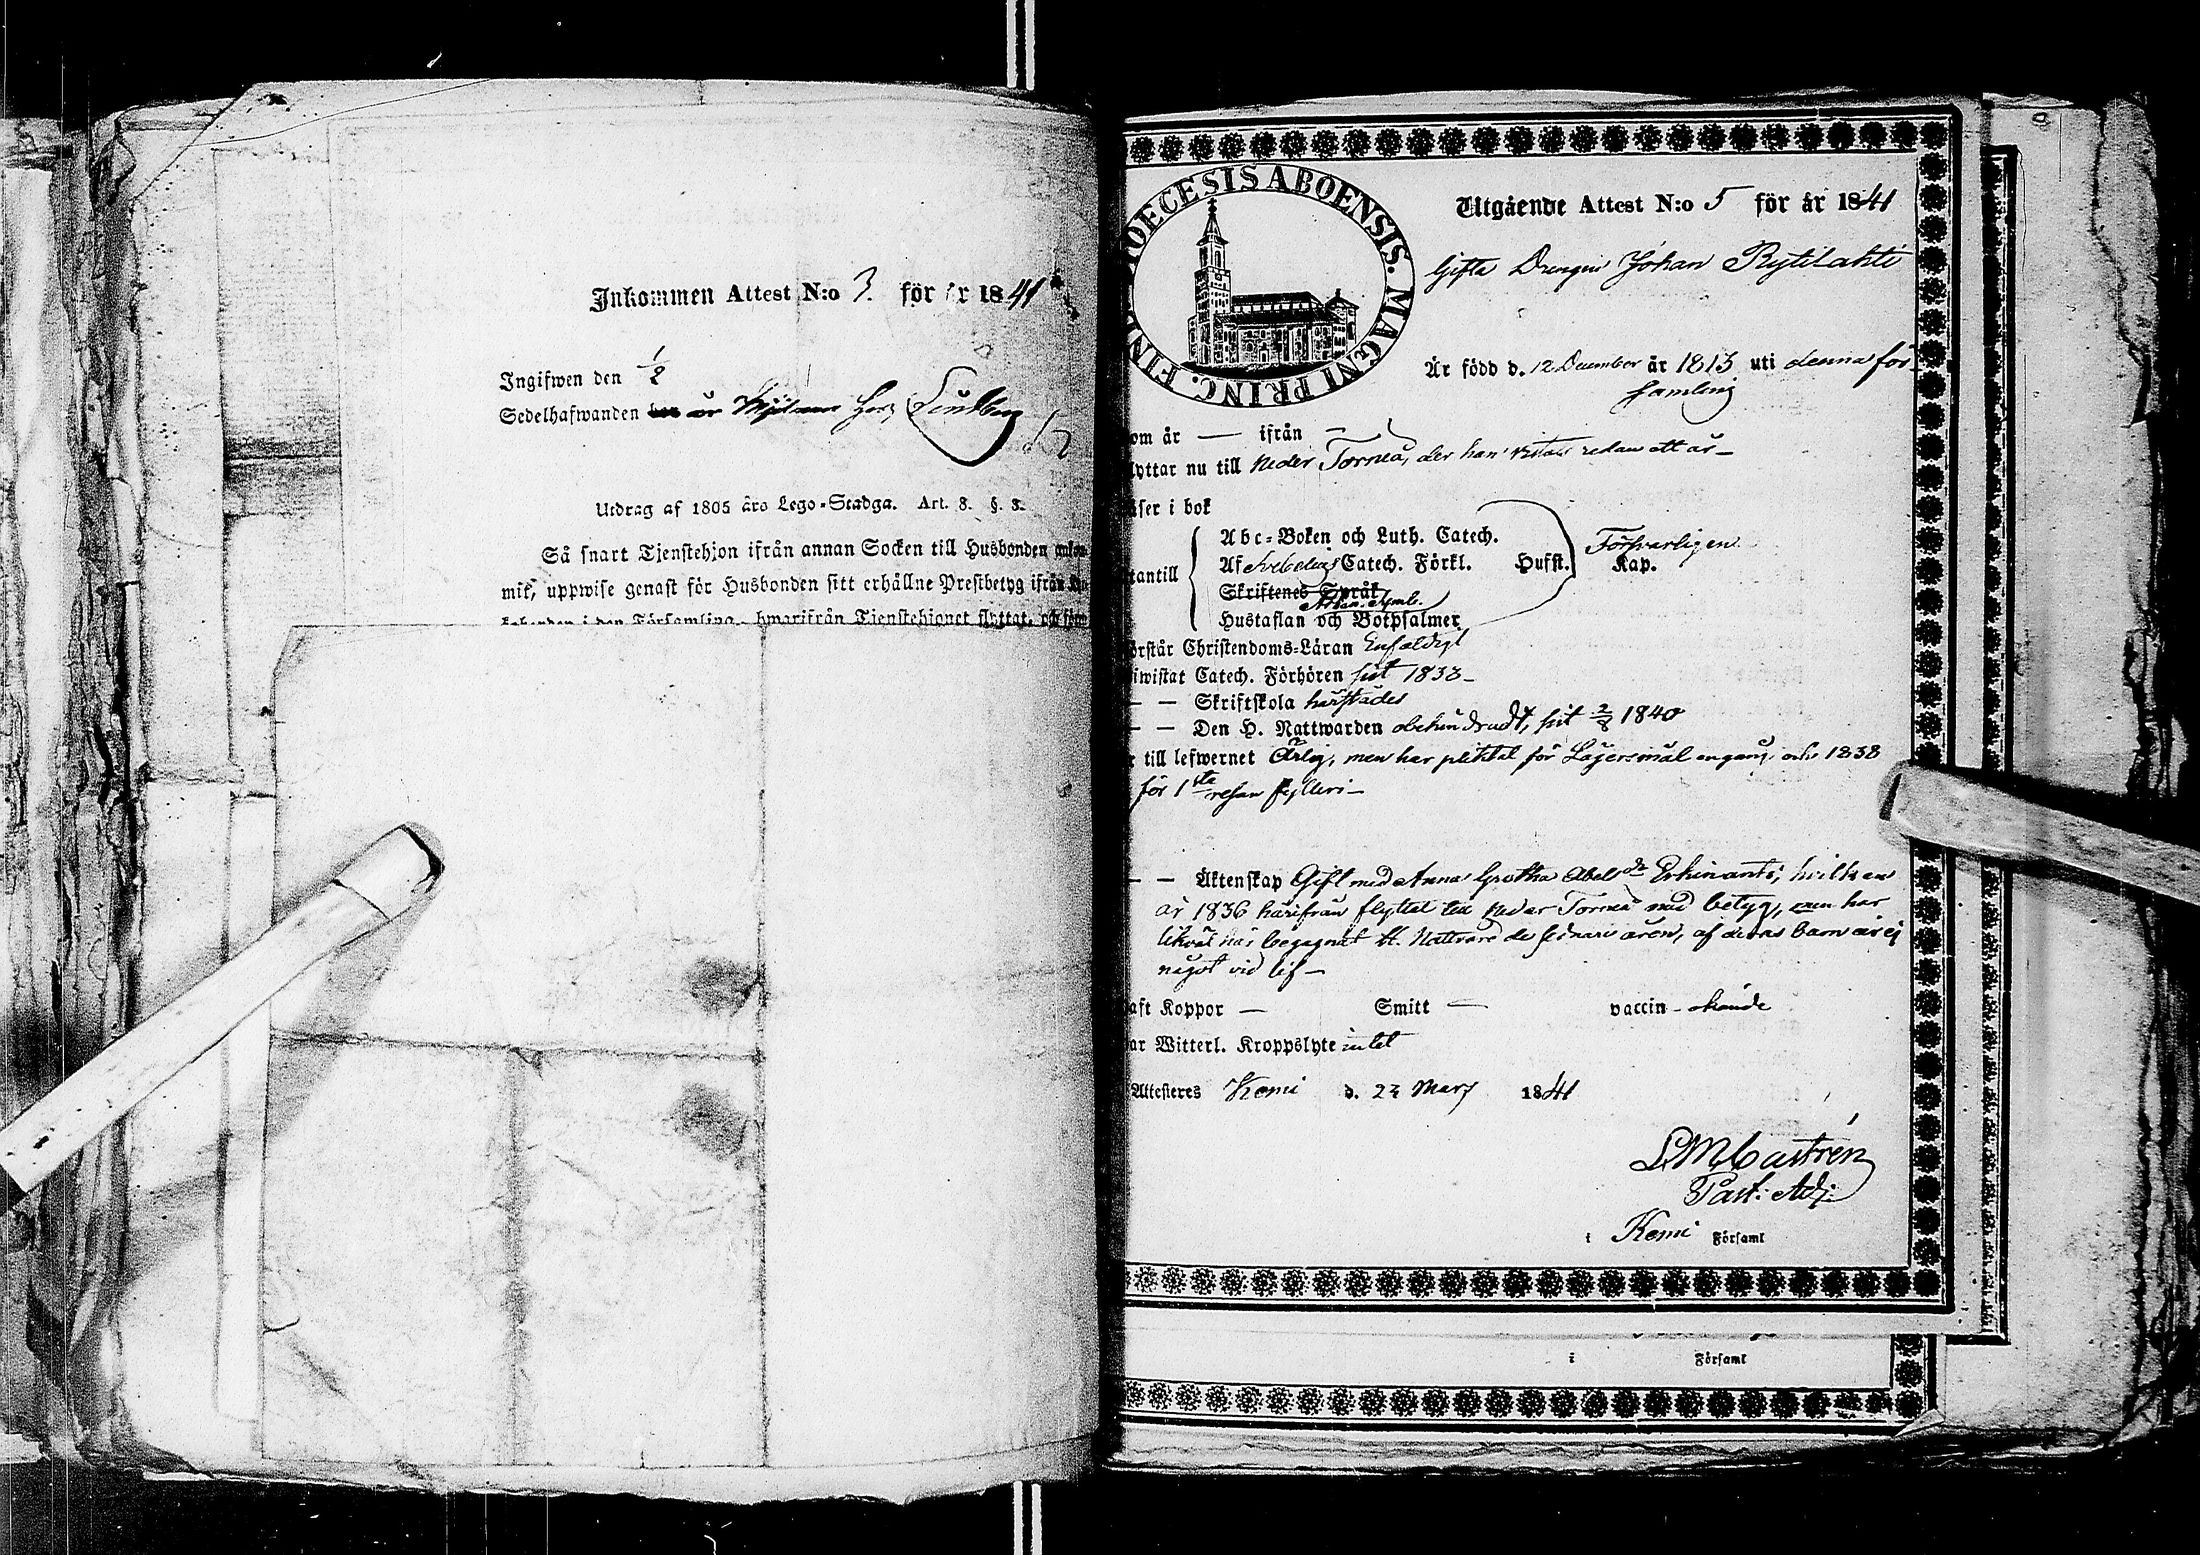 Inkommen Attest N:o 3. för år 1841
Ingifwen den 1/2
Sedelhafwanden
Utdrag af 1805 års Lego-Stadga. Art. 8. §. 3.
Så snart Tjenstehjon ifrån annan Socken till Husbonden
mit, uppwise genast för Husbonden sitt erhållne Prestbetyg ifrån
i den Församling, hwarifrån Tjenstehjonet flyttat, och
OECESIS ABOENSIS. MAGNI PRINC. FIN
Utgående Attest N:o 5 för år 1841
Gifta Drengen Johan Rytilahti
Är född d. 12 December år 1813 uti denna för
samling
om år — ifrån —
lyttar nu till Neder Torneå, der han vistats redan ett år —
äser i bok
tantill
Abc-Boken och Luth. Catech.
Af Svebelius Catech. Förkl. Hufst. Kap.
Försvarligen
Skriftenes Språk
Athan. Symb.
Hustaflan och Botpsalmer
örstår Christendoms-Läran Enfaldigt
iwistat Catech. Förhören sist 1838 —
— — Skriftskola härstädes
— — Den H. Nattwarden obehindradt, sist 2/8 1840
r till lefwernet Ärlig, men har pliktat för Lägersmål engång, och 1838
för 1sta resan fylleri —
— — Äktenskap Gift med Anna Gretha Abelsdr Erkinantti, hvilken
år 1836 härifrån flyttat till Neder Torneå med betyg, men har
likväl här begagnat H. Nattvard de senare åren, af deras barn är ej
något vid lif —
aft Koppor — Smitt — vaccin- skände
ar Witterl. Kroppslyte intet
Attesteres Kemi d. 23 Mars 1841
L. M. Castrén
Past: Adj:
i Kemi Församl
i Församl